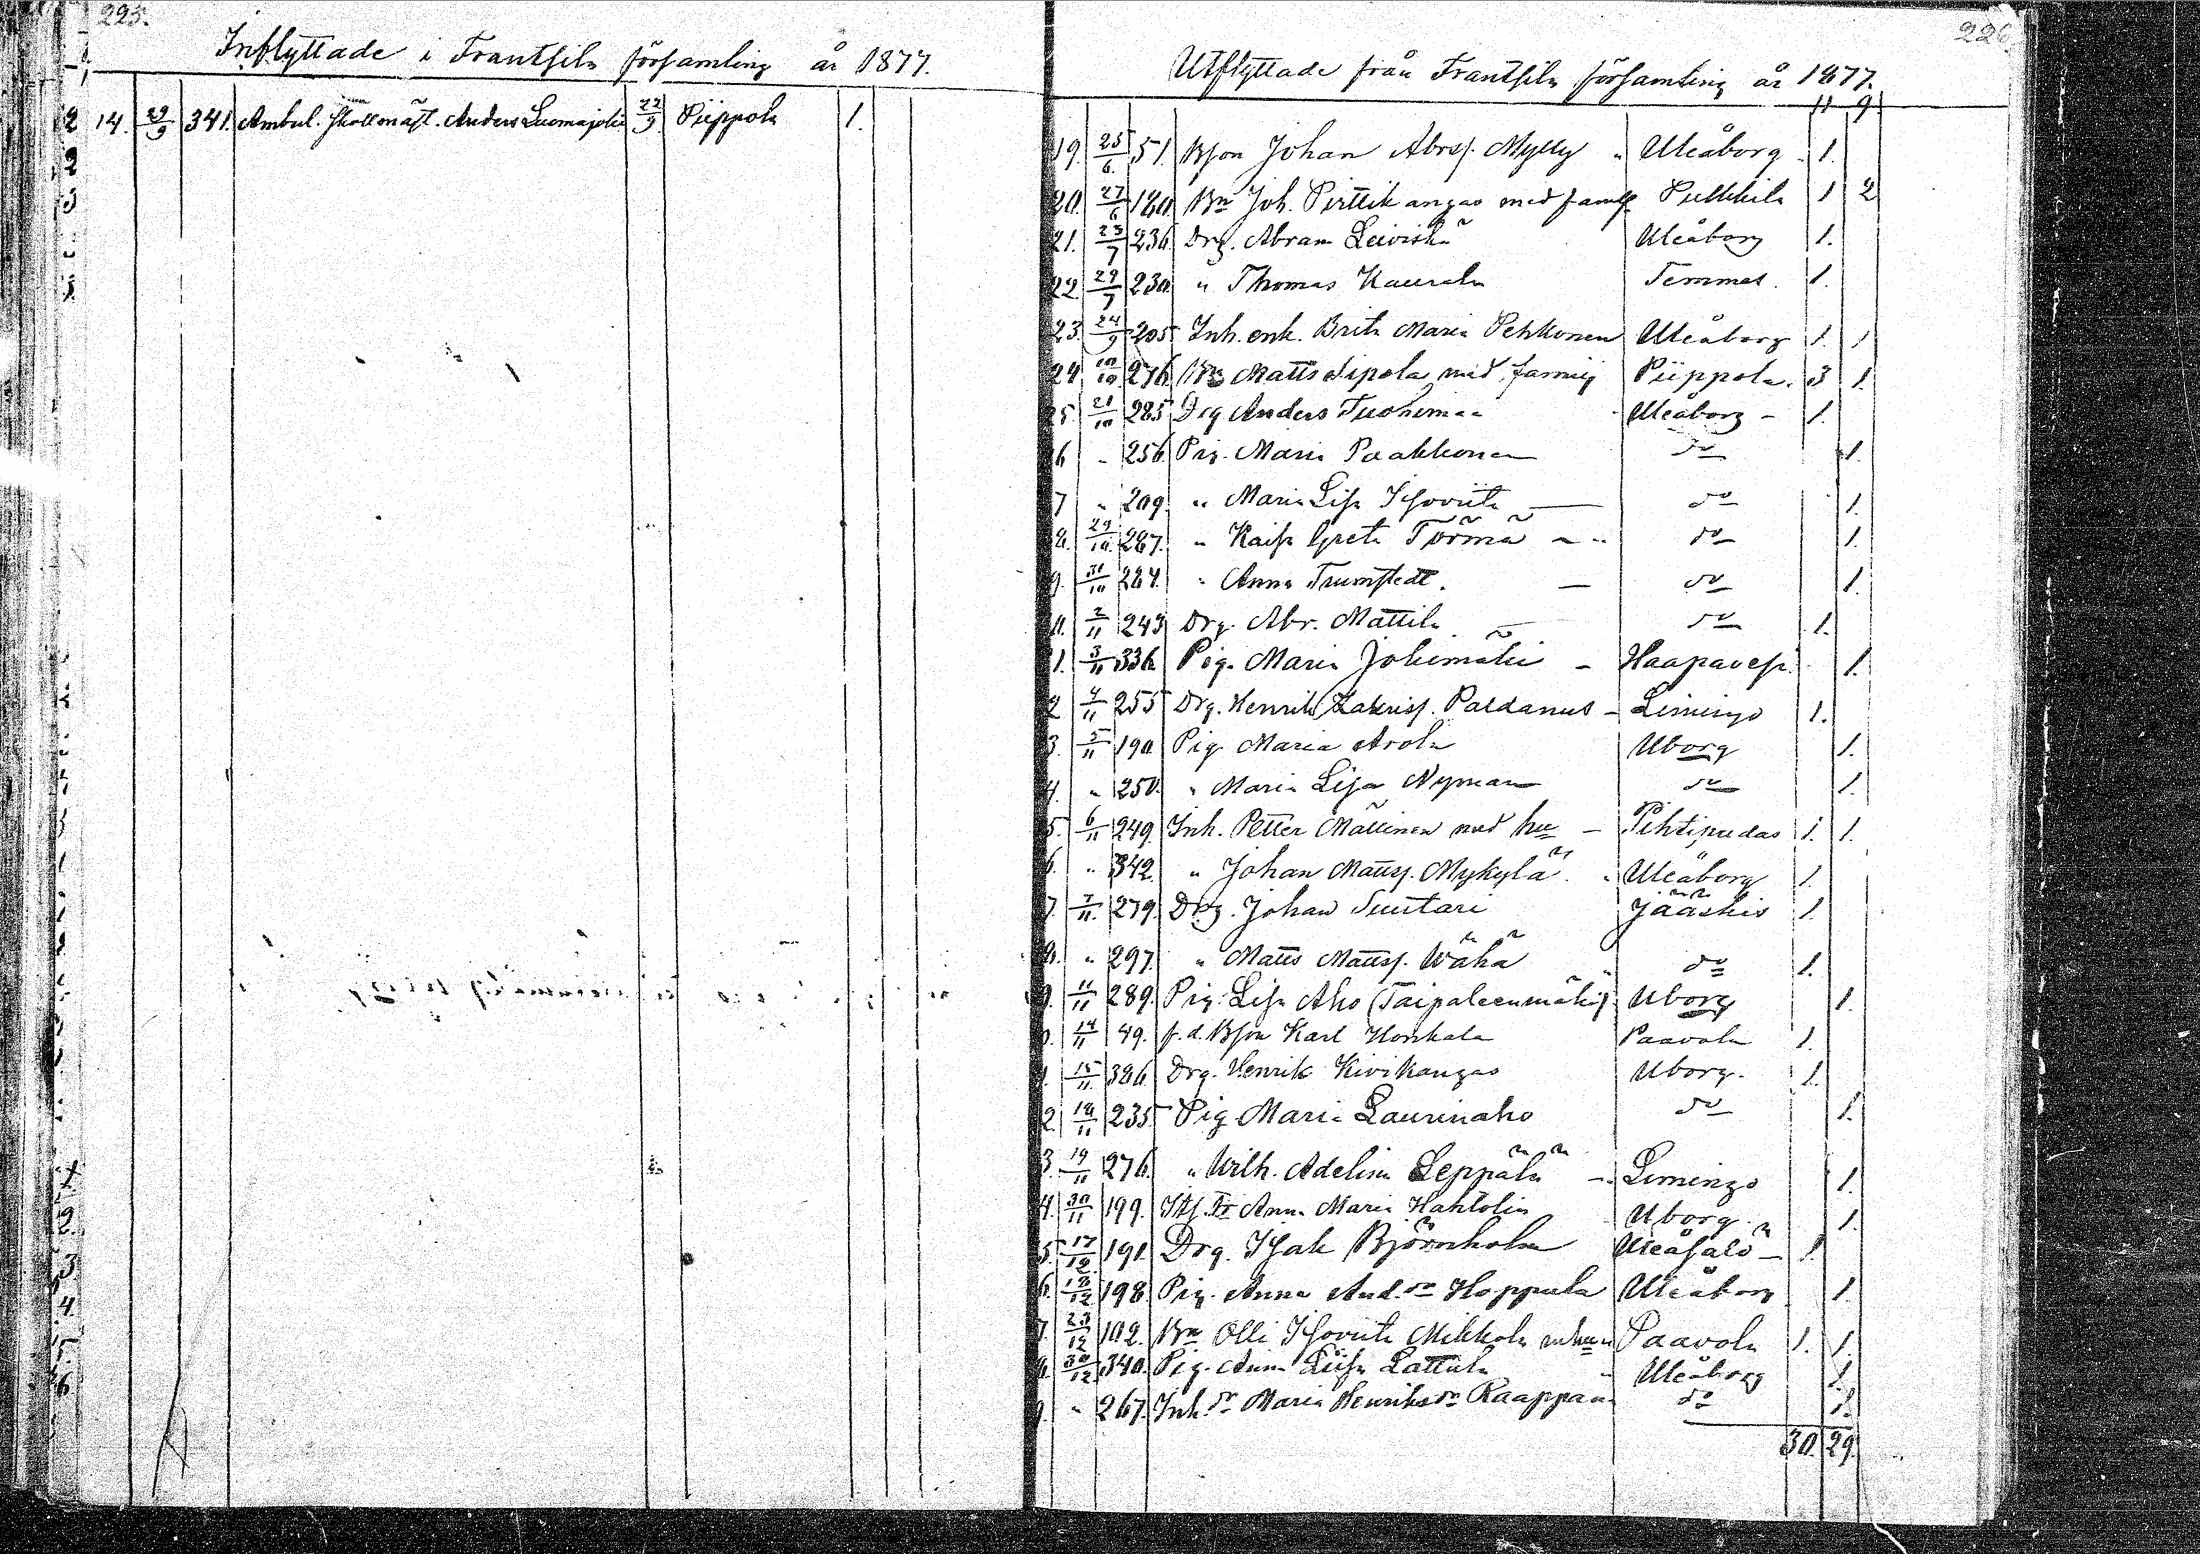 225.
Inflyttade i Frantsila församling år 1877.
14. 29/9 341. Ambul. skollmäst. Anders Luomajoki 22/9 Piippola 1.
226.
Utflyttade från Frantsila församling år 1877.
11 9
19. 25/6 51. Bson Johan Abrss. Mylly " Uleåborg 1.
20. 27/6 180. Bn Joh. Pirttikangas med familj Pulkkila 1 2
21. 23/7 236. Drg. Abram Leiviskä Uleåborg 1.
22. 29/7 230. " Thomas Kaurala Temmes. 1.
23. 24/9 205 Inh. enk. Brita Maria Pehkonen Uleåborg 1. 1
24 10/10 276. Bn Matts Sipola med familj Piippola. 3 1.
25. 21/10 285 Drg Anders Tuohimaa Uleåborg – 1.
6 " 256. Pig. Maria Paakkonen do 1.
7 " 209. " Maria Lisa Isoviita — do 1.
8. 29/10 287. " Kaisa Greta Törmä do 1.
9. 31/10 284. " Anna Trumstedt. — do 1.
0. 2/11 243 Drg. Abr. Mattila — do 1.
1. 3/11 336. Pig. Maria Jokimäki – Haapavesi. 1.
2 4/11 255 Drg. Henrik Zakriss. Paldanus – Limingo 1.
3. 5/11 190 Pig Maria Arola Uborg 1.
4. " 250. " Maria Lisa Nyman do 1.
5. 6/11 249. Inh. Petter Mällinen med hu – Pihtipudas 1. 1.
6. " 342. " Johan Mattss. Mykylä. " Uleåborg 1.
7. 7/11. 279. Drg. Johan Suutari Jääskis 1.
8. " 297. " Matts Mattss. Wähä do 1.
9. 11/11 289. Pig. Lisa Aho (Taipaleenmäki) Uborg 1.
0. 14/11 49. f.d. Bson Karl Honkala Paavola 1.
1. 15/11. 386. Drg. Henrik Kivikangas Uborg. 1.
2. 18/11 235 Pig Maria Laurinaho do 1.
3. 19/11 276. " Wilh. Adelina Leppälä – Limingo 1.
4. 30/11 199. Anna Maria Hahtolin Uborg. 1.
5. 17/12 191. Drg. Isak Björnholm Uleåsalo – 1.
6. 18/12 198. Pig. Anna And.dr Hoppula Uleåborg 1.
7. 23/12 102. Bn Olli Isoviita Mikkola m hu Paavola 1. 1.
8. 30/12 340. Pig. Anna Liisa Lattula " Uleåborg 1.
9. " 267. Inh. dr Maria Henriksdr Raappana do 1.
30. 29.